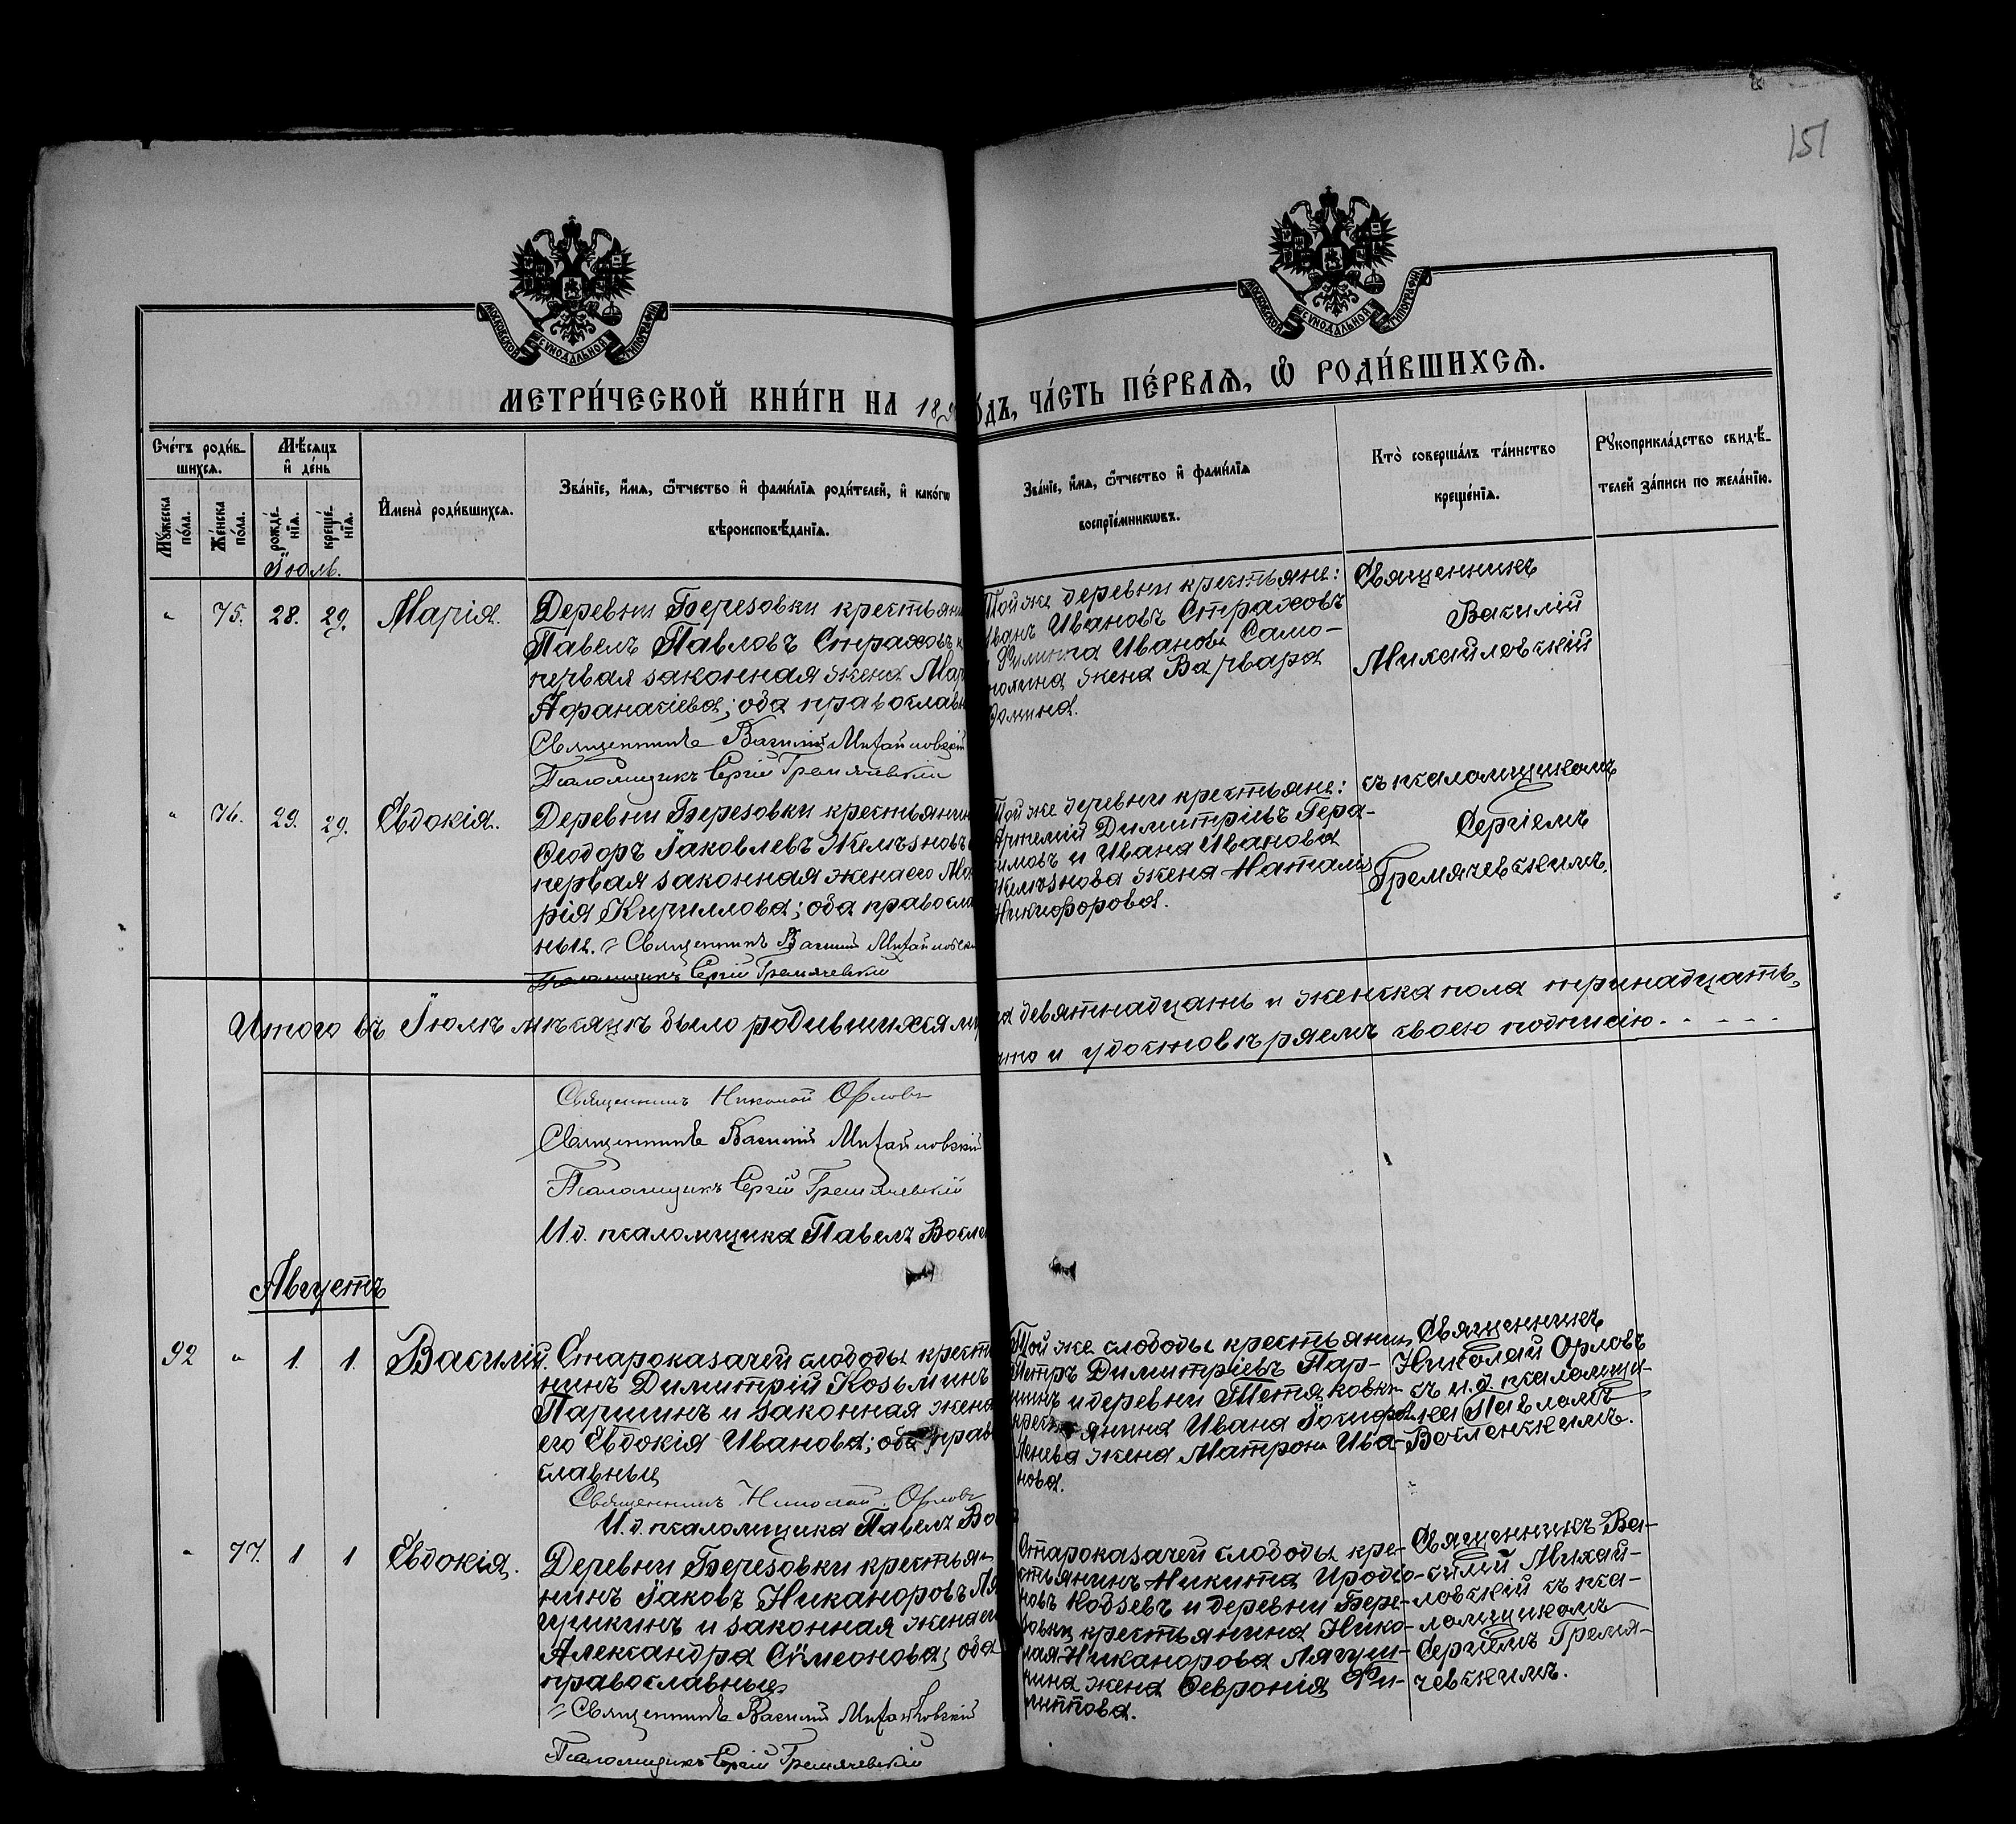 151
МОСКОВСКОЙ СѴНОДАЛЬНОЙ ТИПОГРАФІИ
МОСКОВСКОЙ СѴНОДАЛЬНОЙ ТИПОГРАФІИ
МЕТРИ́ЧЕСКОЙ КНИ́ГИ НА 18 ОДЪ, ЧА́СТЬ ПЕ́РВАѦ, Ѽ РОДИ́ВШИХСѦ.
Сче́тъ роди́в-
шихсѧ.
Мꙋ́жеска по́ла.
Же́нска по́ла.
Мѣ́сѧцъ
и҆ де́нь
рожде́-
нїѧ.
креще́-
нїѧ.
И҆мена̀ роди́вшихсѧ.
Зва́нїе, и҆́мѧ, ѻ҆́тчество и҆ фами́лїѧ роди́телей, и҆ како́гѡ
вѣроисповѣ́данїѧ.
Зва́нїе, и҆́мѧ, ѻ҆́тчество и҆ фами́лїѧ
воспрїе́мникѡвъ.
Кто̀ соверша́лъ та́инство
креще́нїѧ.
Рꙋкоприкла́дство свидѣ́-
телей за́писи по жела́нїю.
Іюль.
" 75. 28. 29. Марія.
Деревни Березовки крестьяни
Павелъ Павловъ Страховъ и
первая законная жена Мар
Афанасіева; оба православн
Священникъ Василій Михайловскій
Псаломщикъ Сергій Гремячевскій
Той же деревни крестьяне:
Иванъ Ивановъ Страховъ
Иванова Само-
жена Варвара
Священникъ
Василій
Михайловскій
" 76. 29. 29. Евдокія.
Деревни Березовки крестьянин
Ѳеодоръ Іаковлевъ Желѣзновъ
первая законная жена его Ма
рія Кириллова; оба правосла
ные. Священникъ Василій Михайловскій
Псаломщикъ Сергій Гремячевскій
Той же деревни крестьяне:
Артемій Димитріевъ Гера-
симовъ и Ивана Иванова
Желѣзнова жена Наталія
Никифорова.
съ псаломщикомъ
Сергіемъ
Гремячевскимъ.
Итого въ Іюлѣ мѣсяцѣ было родившихся му
девятнадцать и женска пола тринадцать,
что и удостовѣряемъ своею подписію. - - - - -
Священникъ Николай Орловъ
Священникъ Василій Михайловскій
Псаломщикъ Сергій Гремячевскій
И. д. псаломщика Павелъ Восле
Августъ
92 " 1. 1. Василій.
Староказачей слободы крест
нинъ Димитрій Козьминъ
Паршинъ и законная жена
его Евдокія Иванова; оба прав
славные
Священникъ Николай Орловъ
И. д. псаломщика Павелъ Во
Той же слободы крестьянин
Петръ Димитріевъ Пар-
шинъ и деревни
крестьянина Ивана
жена Матрона Ива-
нова.
Священникъ
Николай Орловъ
съ и. д. псаломщи-
ка Павломъ
Восленскимъ.
" 77. 1 1 Евдокія.
Деревни Березовки крестья-
нинъ Іаковъ Никаноровъ Ля
гушкинъ и законная жена ег
Александра Сѵмеонова; оба
православные
Священникъ Василій Михайловскій
Псаломщикъ Сергій Гремячевскій
Староказачей слободы кре-
стьянинъ Никита Иродіо-
новъ Кобзевъ и деревни Бере-
зовки крестьянина Нико-
лая Никанорова Лягуш-
кина жена Ѳевронія Фи-
липпова.
Священникъ Ва-
силій Михай-
ловскій съ пса-
ломщикомъ
Сергіемъ Гремя-
чевскимъ.